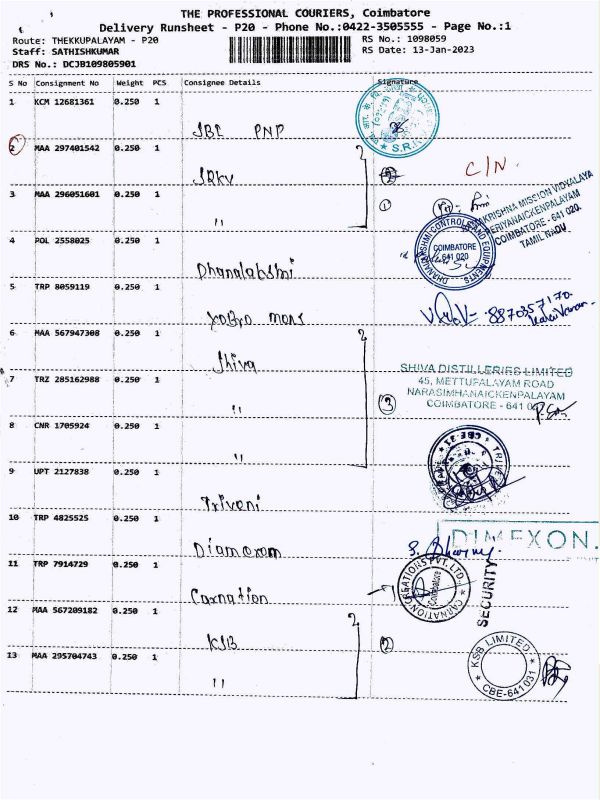 THE PROFESSIONAL COURIERS, Coimbatore
Delivery Runsheet - P20 - Phone No.:0422-3505555 - Page No.:1
Route: THEKKUPALAYAM - P20
RS No.: 1098059
Staff: SATHISHKUMAR
RS Date: 13-Jan-2023
DRS No.: DCJB109805901
S No Consignment No Weight PCS Consignee Details Signature
1 KCM 12681361 0.250 1
SBI PNP
S.R.
2 MAA 297401542 0.250 1
SRKV
C/N.
3 MAA 296051601 0.250 1
"
①
KRISHNA MISSION VIDYALAYA
PERIYANAICKENPALAYAM
COIMBATORE - 641 020.
TAMIL NADU
4 POL 2558025 0.250 1
Dhanalakshmi
DHANALAKSHMI CONTROLS AND EQUIPMENTS
COIMBATORE
641 020
5 TRP 8059119 0.250 1
8870357170
6 MAA 567947308 0.250 1
Shiva
SHIVA DISTILLERIES LIMITED
45, METTUPALAYAM ROAD
NARASIMHANAICKENPALAYAM
COIMBATORE - 641
7 TRZ 285162988 0.250 1
"
③
8 CNR 1705924 0.250 1
"
CBE-31
9 UPT 2127838 0.250 1
Triveni
10 TRP 4825525 0.250 1
Diamexom
DIMEXON.
11 TRP 7914729 0.250 1
Carnation
CARNATION CREATIONS PVT. LTD.
Coimbatore
SECURITY
12 MAA 567209182 0.250 1
KSB
②
13 MAA 295704743 0.250 1
"
KSB LIMITED
CBE-641 031